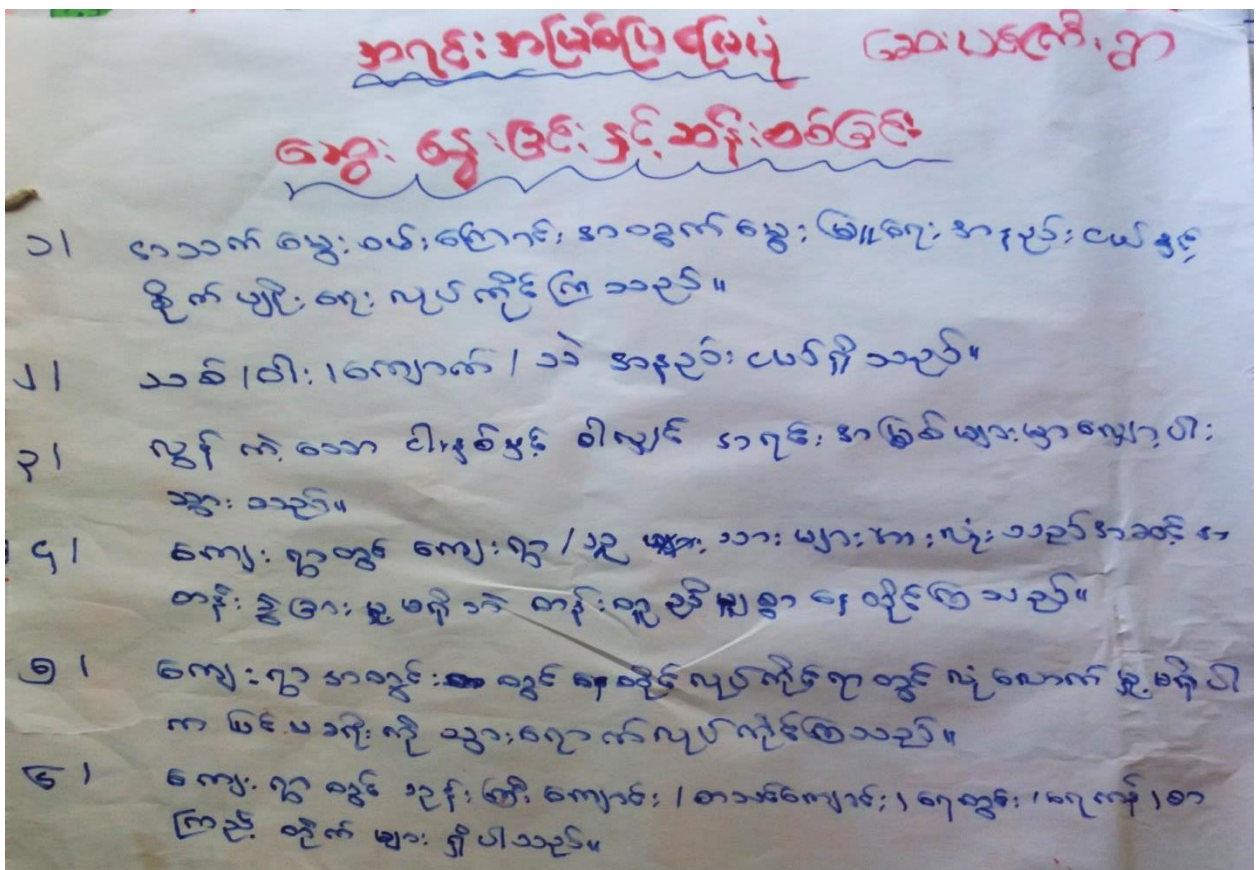 အရင်းအမြစ်ပြမြေပုံ ဆေးပကြီးရွာ
ဆွေးနွေးခြင်းနှင့်ဆန်းစစ်ခြင်း
၁။ အသက်မွေးဝမ်းကြောင်းအတွက် မွေးမြူရေးအနည်းငယ်နှင့်
စိုက်ပျိုးရေးလုပ်ကိုင်ကြသည်။
၂။ သစ်/ဝါး/ကျောက်/သဲ အနည်းငယ်ရှိသည်။
၃။ လွန်ကဲ့သော ငါးနှစ်နှင့် ဝါလျှင် အရင်းအမြစ်များမှာလျော့ပါး
သွားသည်။
၄။ ကျေးရွာတွင် ကျေးရွာ/သူ သားများအားလုံးသည်အဆင့်အ
တန်းခွဲခြားမှု့မရှိဘဲ တန်းတူညီမျှစွာ နေထိုင်ကြသည်။
၅။ ကျေးရွာအတွင်း တွင် နေထိုင်လုပ်ကိုင်ရာတွင် လုံလောက်မှု့မရှိပါ
က မြင်းမခရိုးကို သွားရောက်လုပ်ကိုင်ကြသည်။
၆။ ကျေးရွာတွင် ဘုန်းကြီးကျောင်း/စာသင်ကျောင်း/ရေတွင်း/ရေကန်/စာ
ကြည့်တိုက်များရှိပါသည်။